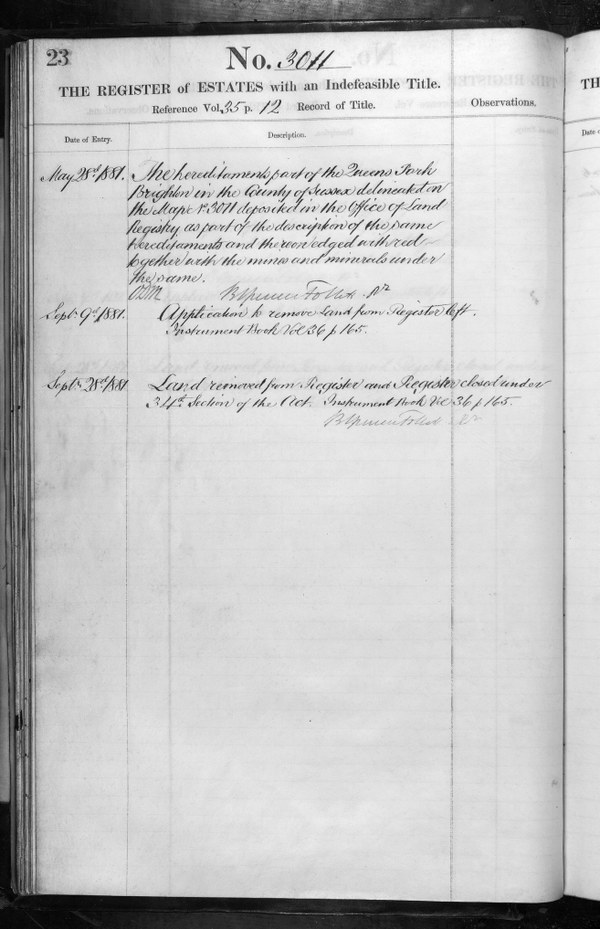 23
No. 3011
THE REGISTER of ESTATES with an Indefeasible Title.
Reference Vol. 35 p. 12 Record of Title.
Observations.
Date of Entry.
Description.
May 28th 1881. The hereditaments part of the Queens Park
Brighton in the County of Sussex delineated on
the Map No 3011 deposited in the Office of Land
Registry as part of the description of the same
hereditaments and thereon edged with red
together with the mines and minerals under
the same.
Brent Spencer Follett
Septr 9th 1881. Application to remove Land from Register left.
Instrument Book Vol 36 p 165.
Septr 28th 1881 Land removed from Register and Register closed under
34th Section of the Act. Instrument Book Vol 36 p 165.
TH
Date of